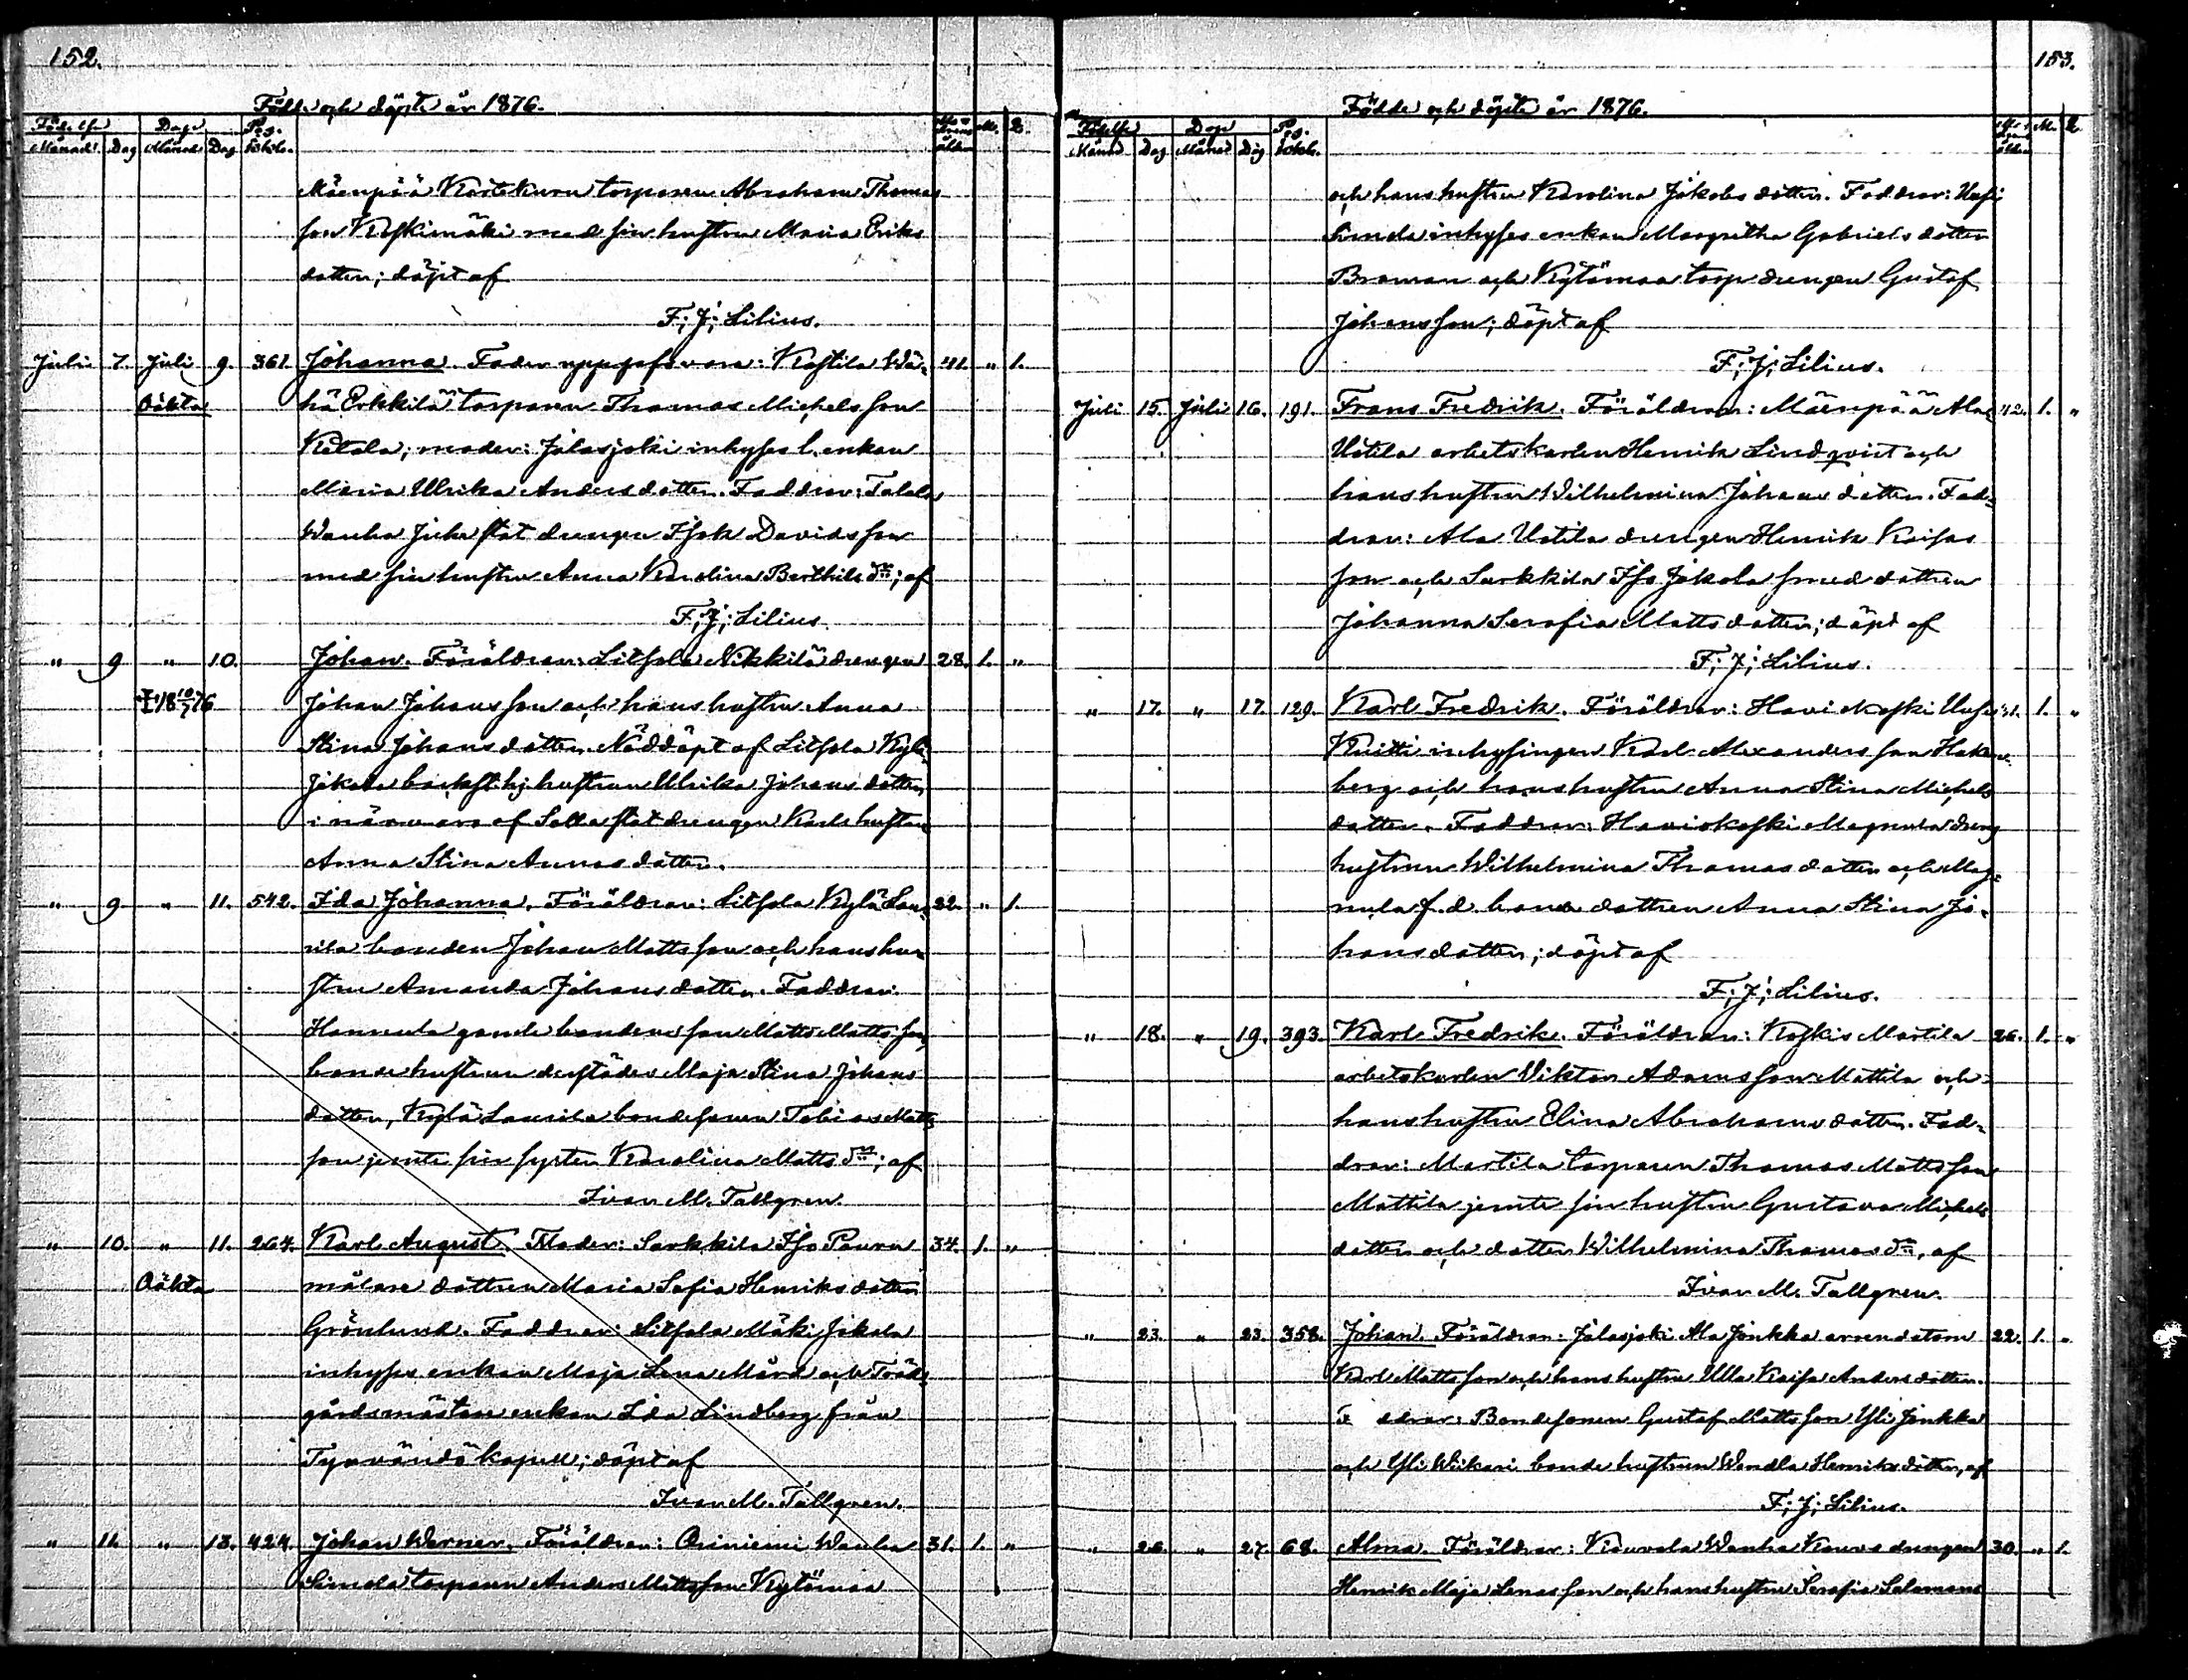 152.
Födde och döpte år 1876.
Födelse Döpe Pag. M. Q.
Månad Dag Månad Dag
Mäenpää Kartekuru torparen Abraham Thomas
son Koskimäki med sin hustru Maria Eriks
dotter; döpt af
F; J; Lilius.
Juli 7. Juli 9. 361. Johanna. Fader uppgifs vara: Kostila Wä- 41. " 1.
Oäkta hä Erkkilä torparen Thomas Michelsson
Ketola; moder: Jalasjoki inhyses l. enkan
Maria Ulrika Andersdotter. Faddrar: Talala
Wanha Juho stat drengen Isak Davidsson
med sin hustru Anna Karolina Berthils dtr; af
F; J; Lilius.
" 9 " 10. Johan. Föräldrar: Liitsola Nikkilä drengen 28. 1. "
Johan Johansson och hans hustru Anna
Stina Johansdotter. Nöddöpt af Liitsola Kylä
Jakola backst. hj. hustrun Ulrika Johansdotter
i närvaro af Salla stat drengen Karls hustru
Anna Stina Annasdotter.
" 9 " 11. 542. Ida Johanna. Föräldrar: Liitsola Kylä Lau- 22. " 1.
rila bonden Johan Mattsson och hans hu-
stru Amanda Johansdotter. Faddrar:
Hannula gamle bondens son Matts Mattsson,
bonde hustrun derstädes Maja Stina Johans
dotter, Kylä Laurila bondesonen Tobias Matts
son jemte sin syster Karolina Matts dtr; af
Ivar M. Tallgren.
" 10. " 11. 264. Karl August. Moder: Sarkkila Iso Pauru 34. 1. "
Oäkta målare dottren Maria Sofia Henriksdotter
Grönlund. Faddrar: Liitsola Mäki Jakola
inhyses enkan Maja Lena Mård och Träd-
gårdsmästare enkan Ida Lindberg från
Tyrvändö kapell; döpt af
Ivar M. Tallgren.
" 11. " 13. 424. Johan Werner. Föräldrar: Oriniemi Wanha 31. 1. "
Simola torparen Anders Mattsson Kytömaa
153.
Födde och döpte år 1876.
Födelse Dop Pag. M. Q.
Månad Dag Månad Dag
och hans hustru Karolina Jakobsdotter. Faddrar: Uusi
Simola inhyses enkan Margretha Gabrielsdotter
Broman och Kytömaa torp drengen Gustaf
Johansson; döpt af
F; J; Lilius.
Juli 15. Juli 16. 191. Frans Fredrik. Föräldrar: Mäenpää Ala- 42. 1. "
Uotila arbetskarlen Henrik Lindqvist och
hans hustru Wilhelmina Johansdotter. Fad-
drar: Ala Uotila drengen Henrik Kaisas
son och Sarkkila Iso Jakola smed dottren
Johanna Serafia Mattsdotter; döpt af
F; J; Lilius.
" 17. " 17. 129. Karl Fredrik. Föräldrar: Haviokoski Uusi 1. "
Knitti inhysingen Karl Alexandersson Haken-
berg och hans hustru Anna Stina Michels
dotter. Faddrar: Haviokoski Magnula dreng
hustrun Wilhelmina Thomasdotter och Mag-
nula f. d. bonde dottren Anna Stina Jo-
hansdotter; döpt af
F; J; Lilius.
" 18. " 19. 393. Karl Fredrik. Föräldrar: Koskis Martila 26. 1. "
arbetskarlen Viktor Adamsson Mattila och
hans hustru Elina Abrahamsdotter. Fad-
drar: Martila torparen Thomas Mattsson
Mattila jemte sin hustru Gustava Michels
dotter och dotter Wilhelmina Thomas dtr, af
Ivar M. Tallgren.
" 23. " 23. 358. Johan. Föräldrar: Jalasjoki Ala Jonkka arrendatorn 22. 1. "
Karl Mattsson och hans hustru Ulla Kaisa Andersdotter.
F ddrar: Bondesonen Gustaf Mattsson Yli Jonkka
och Yli Wiikari bonde hustrun Wendla Henriksdotter, af
F; J; Lilius.
" 26. " 27. 68. Alma. Föräldrar: Kouvola Wanha Kouvo drengen 30. " 1.
Henrik Maja Lenasson och hans hustru Serafia Salomons